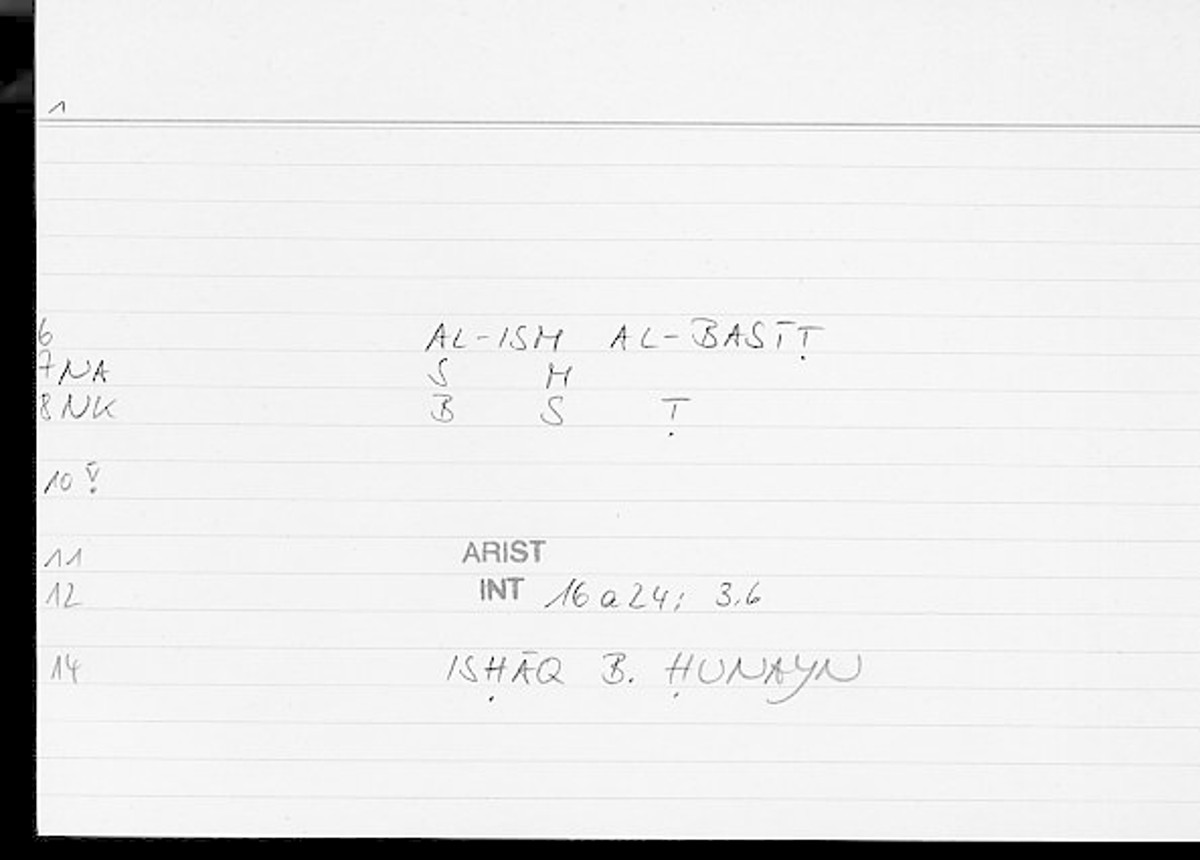 1
6 AL-ISM AL-BASĪṬ
7 NA S M
8 NK B S Ṭ
10 !
11 ARIST
12 INT 16a24; 3.6
14 ISḤĀQ B. ḤUNAYN